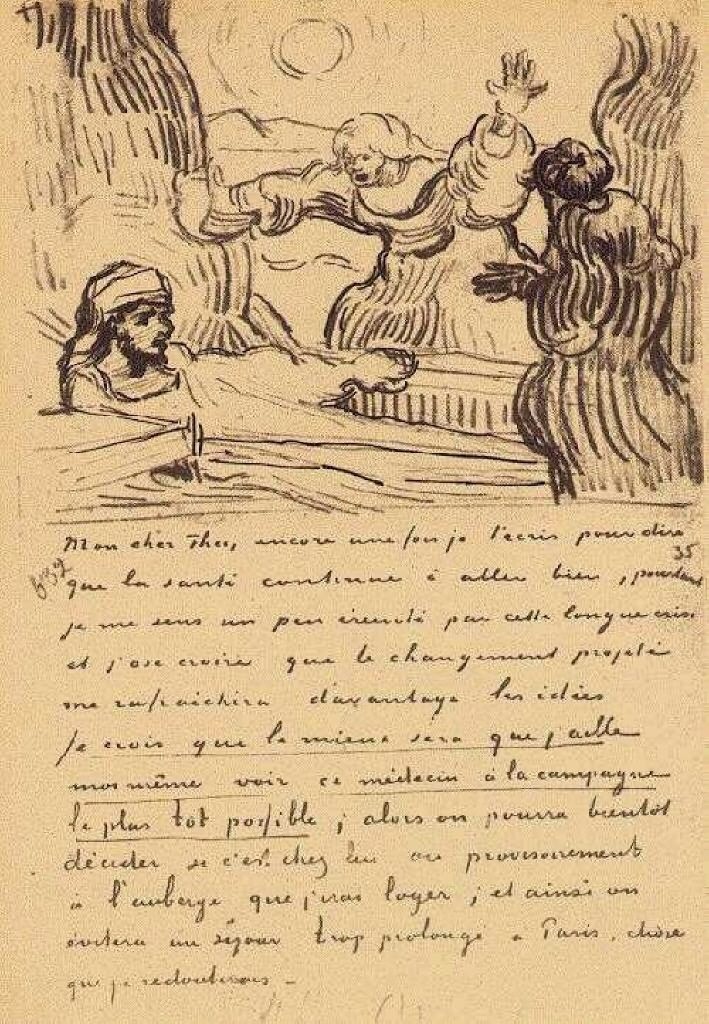 Mon cher Theo, encore une fois je t'ecris pour dire
35
632
que la santé continue à aller bien, pourtant
je me sens un peu éreinté par cette longue crise
et j'ose croire que le changement projeté
me rafraichira davantage les idées
Je crois que le mieux sera que j'aille
moi même voir ce médecin à la campagne
le plus tôt possible ; alors on pourra bientôt
décider si c'est chez lui ou provisoirement
à l'auberge que j'irai loger ; et ainsi on
évitera un séjour trop prolongé à Paris, chose
que je redouterais -